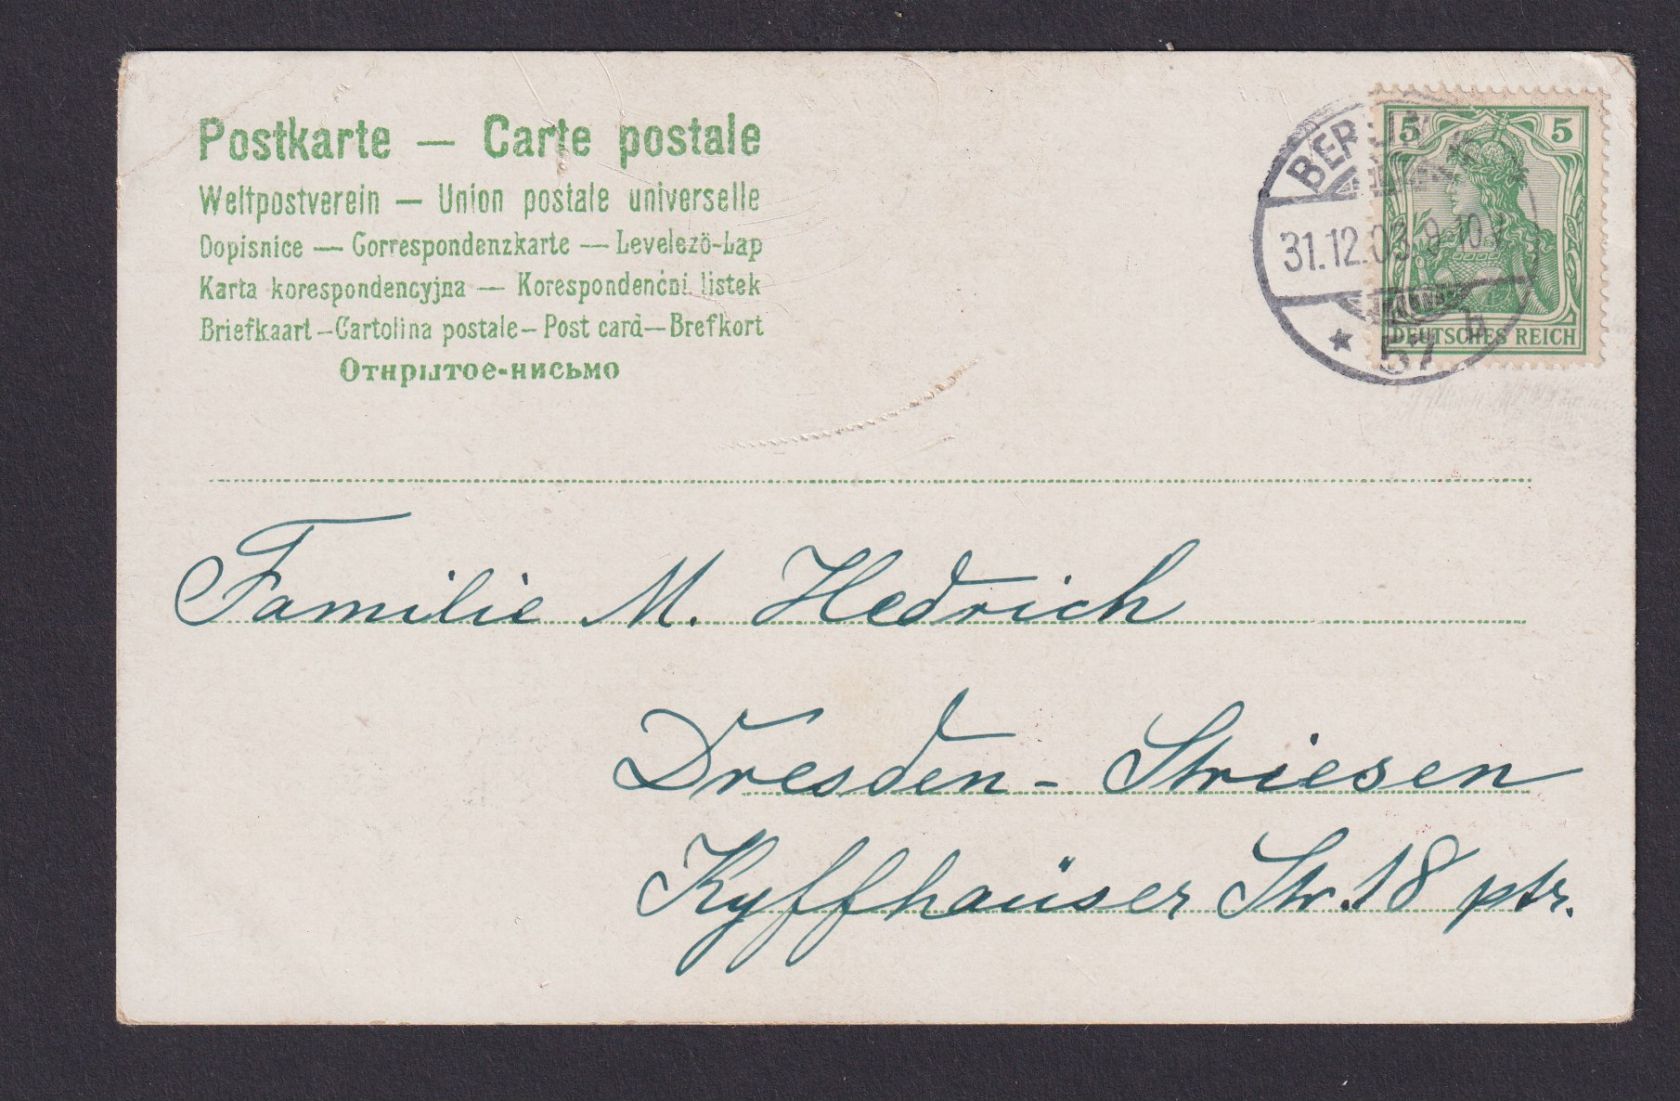 Postkarte — Carte postale
Weltpostverein — Union postale universelle
Dopisnice — Correspondenzkarte — Levelezö-Lap
Karta korespondencyjna — Korespondenčni listek
Briefkaart — Cartolina postale — Post card — Brefkort
Открытое-письмо
5 5
DEUTSCHES REICH
BERLIN W.
31.12.03. 9-10V.
* 57 h
Familie M. Hedrich
Dresden - Striesen
Kyffhäuser Str. 18 ptr.